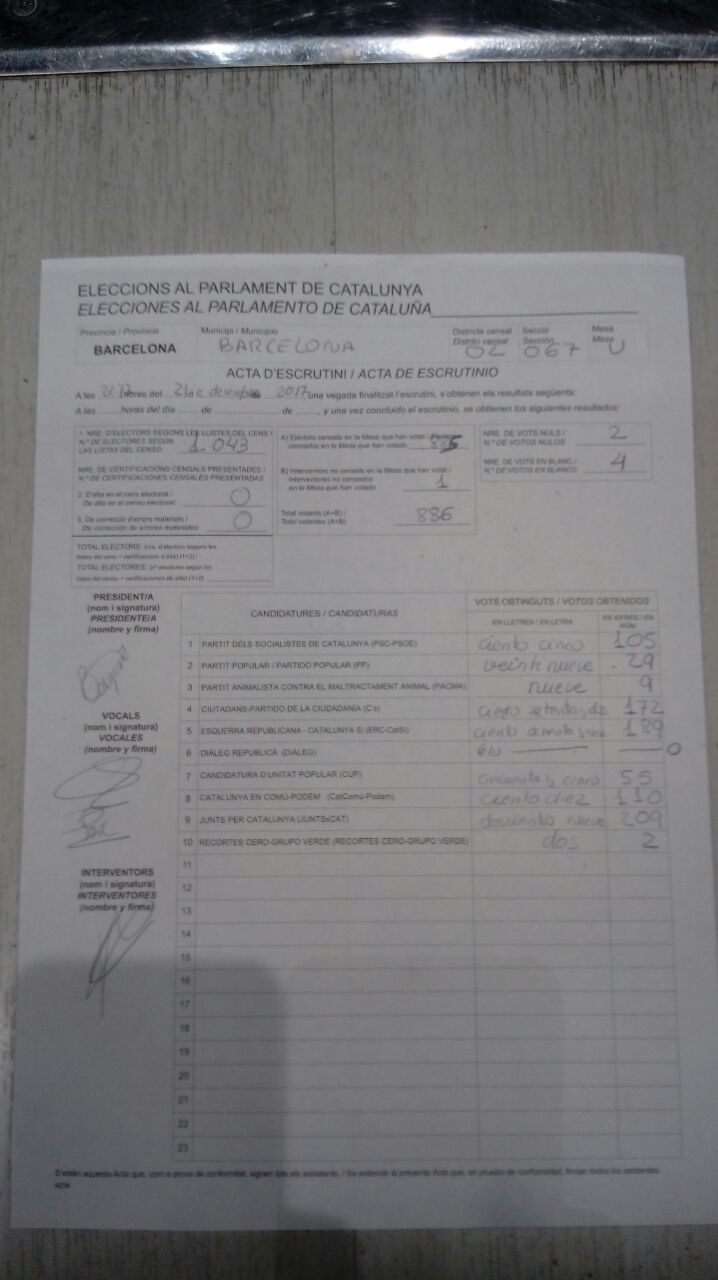 ELECCIONS AL PARLAMENT DE CATALUNYA
ELECCIONES AL PARLAMENTO DE CATALUÑA
Província / Provincia Municipi / Municipio Districte censal Secció Mesa
BARCELONA BARCELONA Distrito censal 02 Sección 067 Mesa U
ACTA D'ESCRUTINI / ACTA DE ESCRUTINIO
A les hores del 21 de desembre 2017 una vegada finalitzat l'escrutini, s'obtenen els resultats següents:
A las horas del día de de , y una vez concluido el escrutinio, se obtienen los siguientes resultados:
1. NRE. D'ELECTORS SEGONS LES LLISTES DEL CENS /
Nº DE ELECTORES SEGÚN
LAS LISTAS DEL CENSO 1.043
NRE. DE CERTIFICACIONS CENSALS PRESENTADES /
Nº DE CERTIFICACIONES CENSALES PRESENTADAS
2. D'alta en el cens electoral /
De alta en el censo electoral: 0
3. De correcció d'errors materials /
De corrección de errores materiales: 0
TOTAL ELECTORS: (nre. d'electors segons les
llistes del cens + certificacions d'alta) (1+2) /
TOTAL ELECTORES: (nº electores según las
listas del censo + certificaciones de alta) (1+2)
A) Electors censats en la Mesa que han votat / Electores
censados en la Mesa que han votado 885
B) Interventors no censats en la Mesa que han votat /
Interventores no censados
en la Mesa que han votado 1
Total votants (A+B) /
Total votantes (A+B) 886
NRE. DE VOTS NULS /
N.º DE VOTOS NULOS 2
NRE. DE VOTS EN BLANC /
N.º DE VOTOS EN BLANCO 4
PRESIDENT/A
(nom i signatura)
PRESIDENTE/A
(nombre y firma)
VOCALS
(nom i signatura)
VOCALES
(nombre y firma)
INTERVENTORS
(nom i signatura)
INTERVENTORES
(nombre y firma)
CANDIDATURES / CANDIDATURAS VOTS OBTINGUTS / VOTOS OBTENIDOS
EN LLETRES / EN LETRA EN XIFRES / EN NÚM.
1 PARTIT DELS SOCIALISTES DE CATALUNYA (PSC-PSOE) ciento cinco 105
2 PARTIT POPULAR / PARTIDO POPULAR (PP) veinte nueve 29
3 PARTIT ANIMALISTA CONTRA EL MALTRACTAMENT ANIMAL (PACMA) nueve 9
4 CIUTADANS-PARTIDO DE LA CIUDADANÍA (C's) ciento setenta y dos 172
5 ESQUERRA REPUBLICANA - CATALUNYA SÍ (ERC-CatSí) ciento ochenta y nueve 189
6 DIÀLEG REPUBLICÀ (DIÀLEG) 0
7 CANDIDATURA D'UNITAT POPULAR (CUP) cincuenta y cinco 55
8 CATALUNYA EN COMÚ-PODEM (CatComú-Podem) ciento diez 110
9 JUNTS PER CATALUNYA (JUNTSxCAT) doscientos nueve 209
10 RECORTES CERO-GRUPO VERDE (RECORTES CERO-GRUPO VERDE) dos 2
11
12
13
14
15
16
17
18
19
20
21
22
23
S'estén aquesta Acta que, com a prova de conformitat, signen tots els assistents. / Se extiende la presente Acta que, en prueba de conformidad, firman todos los asistentes.